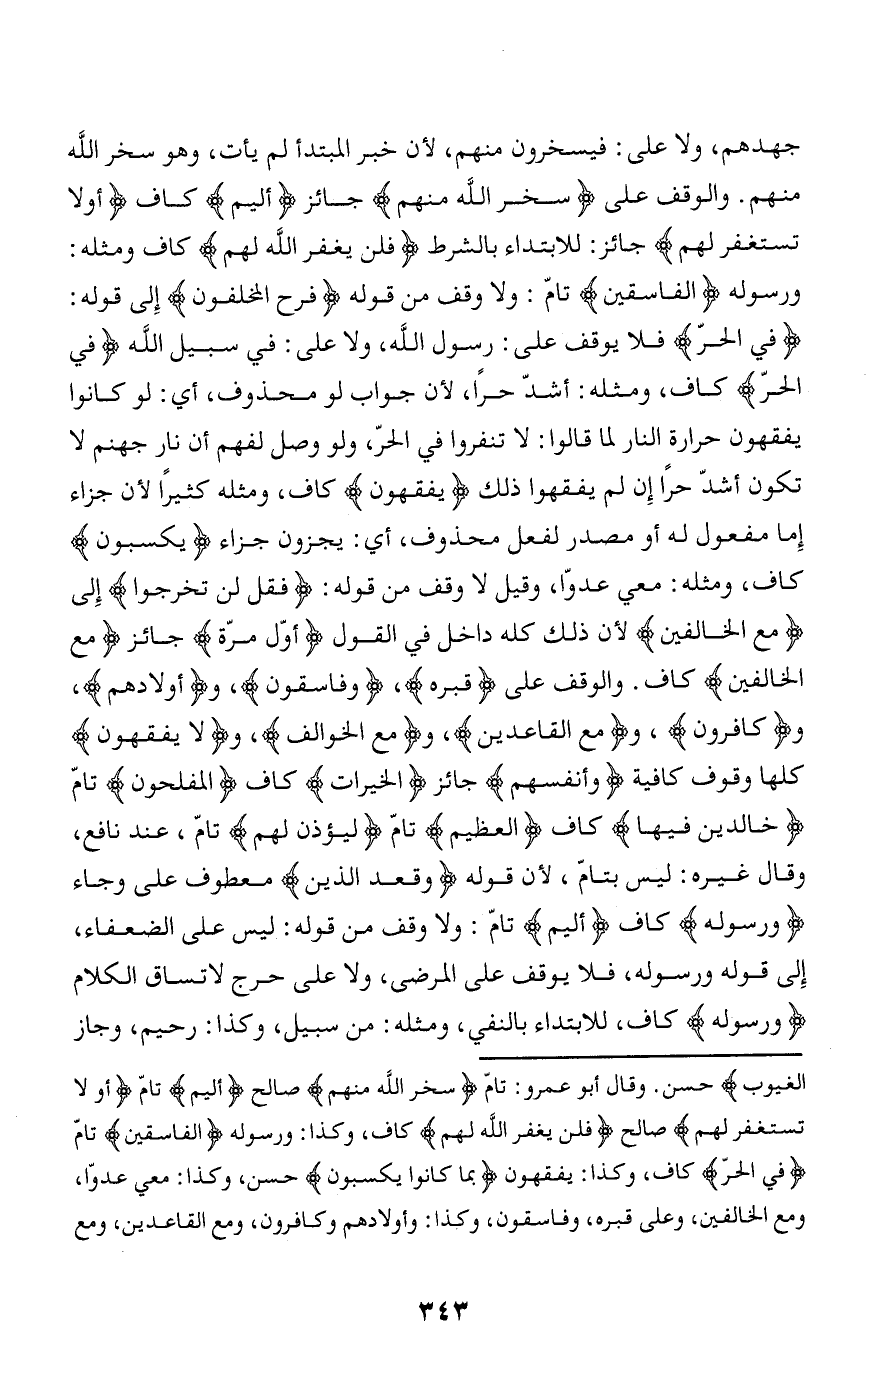 جهدهم، ولا على: فيسخرون منهم، لأن خبر المبتدأ لم يأت، وهو سخر اللَّه
منهم. والوقف على ﴿ سخر اللَّه منهم ﴾ جائز ﴿ أليم ﴾ كاف ﴿ أولا
تستغفر لهم ﴾ جائز: للابتداء بالشرط ﴿ فلن يغفر اللَّه لهم ﴾ كاف ومثله:
ورسوله ﴿ الفاسقين ﴾ تامّ : ولا وقف من قوله ﴿ فرح المخلفون ﴾ إلى قوله:
﴿ في الحرّ ﴾ فلا يوقف على: رسول اللَّه، ولا على: في سبيل اللَّه ﴿ في
الحرّ ﴾ كاف، ومثله: أشدّ حراً، لأن جواب لو محذوف، أي: لو كانوا
يفقهون حرارة النار لما قالوا: لا تنفروا في الحرّ، ولو وصل لفهم أن نار جهنم لا
تكون أشدّ حراً إن لم يفقهوا ذلك ﴿ يفقهون ﴾ كاف، ومثله كثيراً لأن جزاء
إما مفعول له أو مصدر لفعل محذوف، أي: يجزون جزاء ﴿ يكسبون ﴾
كاف، ومثله: معي عدوّا، وقيل لا وقف من قوله: ﴿ فقل لن تخرجوا ﴾ إلى
﴿ مع الخالفين ﴾ لأن ذلك كله داخل في القول ﴿ أوّل مرّة ﴾ جائز ﴿ مع
الخالفين ﴾ كاف. والوقف على ﴿ قبره ﴾، ﴿ وفاسقون ﴾، و﴿ أولادهم ﴾،
و﴿ كافرون ﴾ ، و﴿ مع القاعدين ﴾، و﴿ مع الخوالف ﴾، و﴿ لا يفقهون ﴾
كلها وقوف كافية ﴿ وأنفسهم ﴾ جائز ﴿ الخيرات ﴾ كاف ﴿ المفلحون ﴾ تامّ
﴿ خالدين فيها ﴾ كاف ﴿ العظيم ﴾ تامّ ﴿ ليؤذن لهم ﴾ تامّ ، عند نافع،
وقال غيره: ليس بتامّ ، لأن قوله ﴿ وقعد الذين ﴾ معطوف على وجاء
﴿ ورسوله ﴾ كاف ﴿ أليم ﴾ تامّ : ولا وقف من قوله: ليس على الضعفاء،
إلى قوله ورسوله، فلا يوقف على المرضى، ولا على حرج لاتساق الكلام
﴿ ورسوله ﴾ كاف، للابتداء بالنفي، ومثله: من سبيل، وكذا: رحيم، وجاز
الغيوب ﴾ حسن. وقال أبو عمرو: تامّ ﴿ سخر اللَّه منهم ﴾ صالح ﴿ أليم ﴾ تامّ ﴿ أو لا
تستغفر لهم ﴾ صالح ﴿ فلن يغفر اللَّه لهم ﴾ كاف، وكذا: ورسوله ﴿ الفاسقين ﴾ تامّ
﴿ في الحرّ ﴾ كاف، وكذا: يفقهون ﴿ بما كانوا يكسبون ﴾ حسن، وكذا: معي عدوّا،
ومع الخالفين، وعلى قبره، وفاسقون، وكذا: وأولادهم وكافرون، ومع القاعدين، ومع
٣٤٣